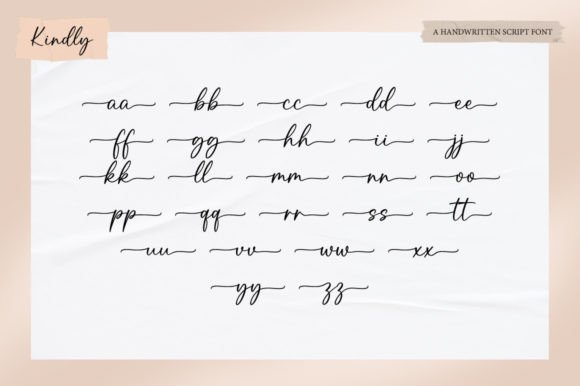 Kindly
A HANDWRITTEN SCRIPT FONT
aa bb cc dd ee
ff gg hh ii jj
kk ll mm nn oo
pp qq rr ss tt
uu vv ww xx
yy zz